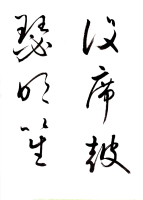 設席鼓
瑟吹笙